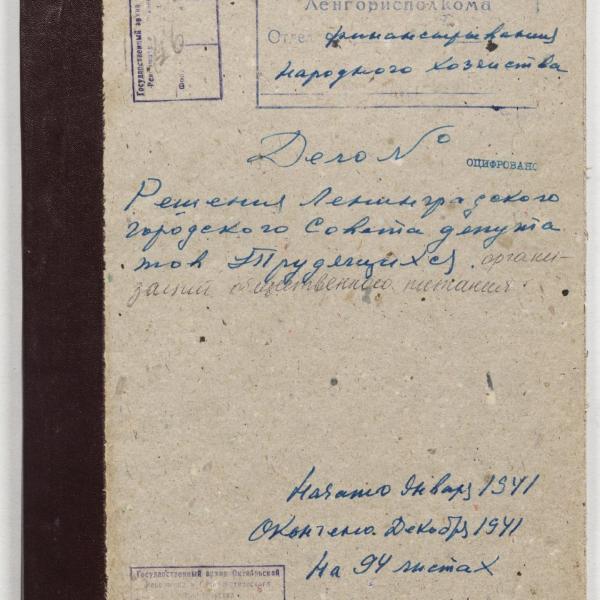 Ленгорисполкома
Отдел финансирования
народного хозяйства
Государственный архив
Дело №
ОЦИФРОВАНО
Решения Ленинградского
городского Совета депута
тов Трудящихся. органи-
заций общественного питания.
Начато Январь 1941
Окончено Декабрь 1941
На 94 листах
Государственный архив Октябрьской